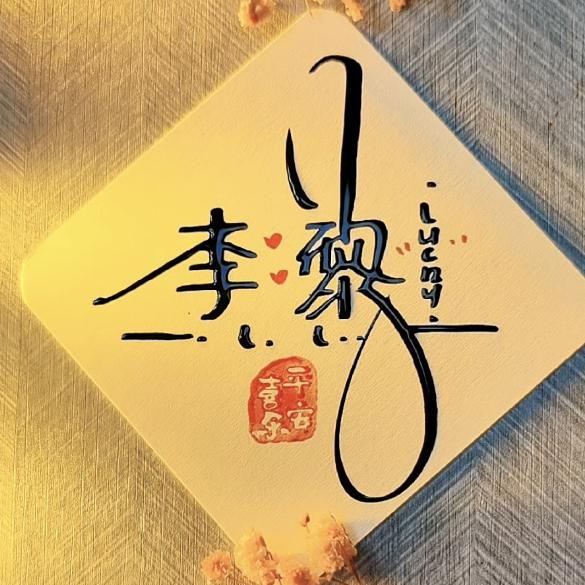 李
Lucky
平安
喜乐